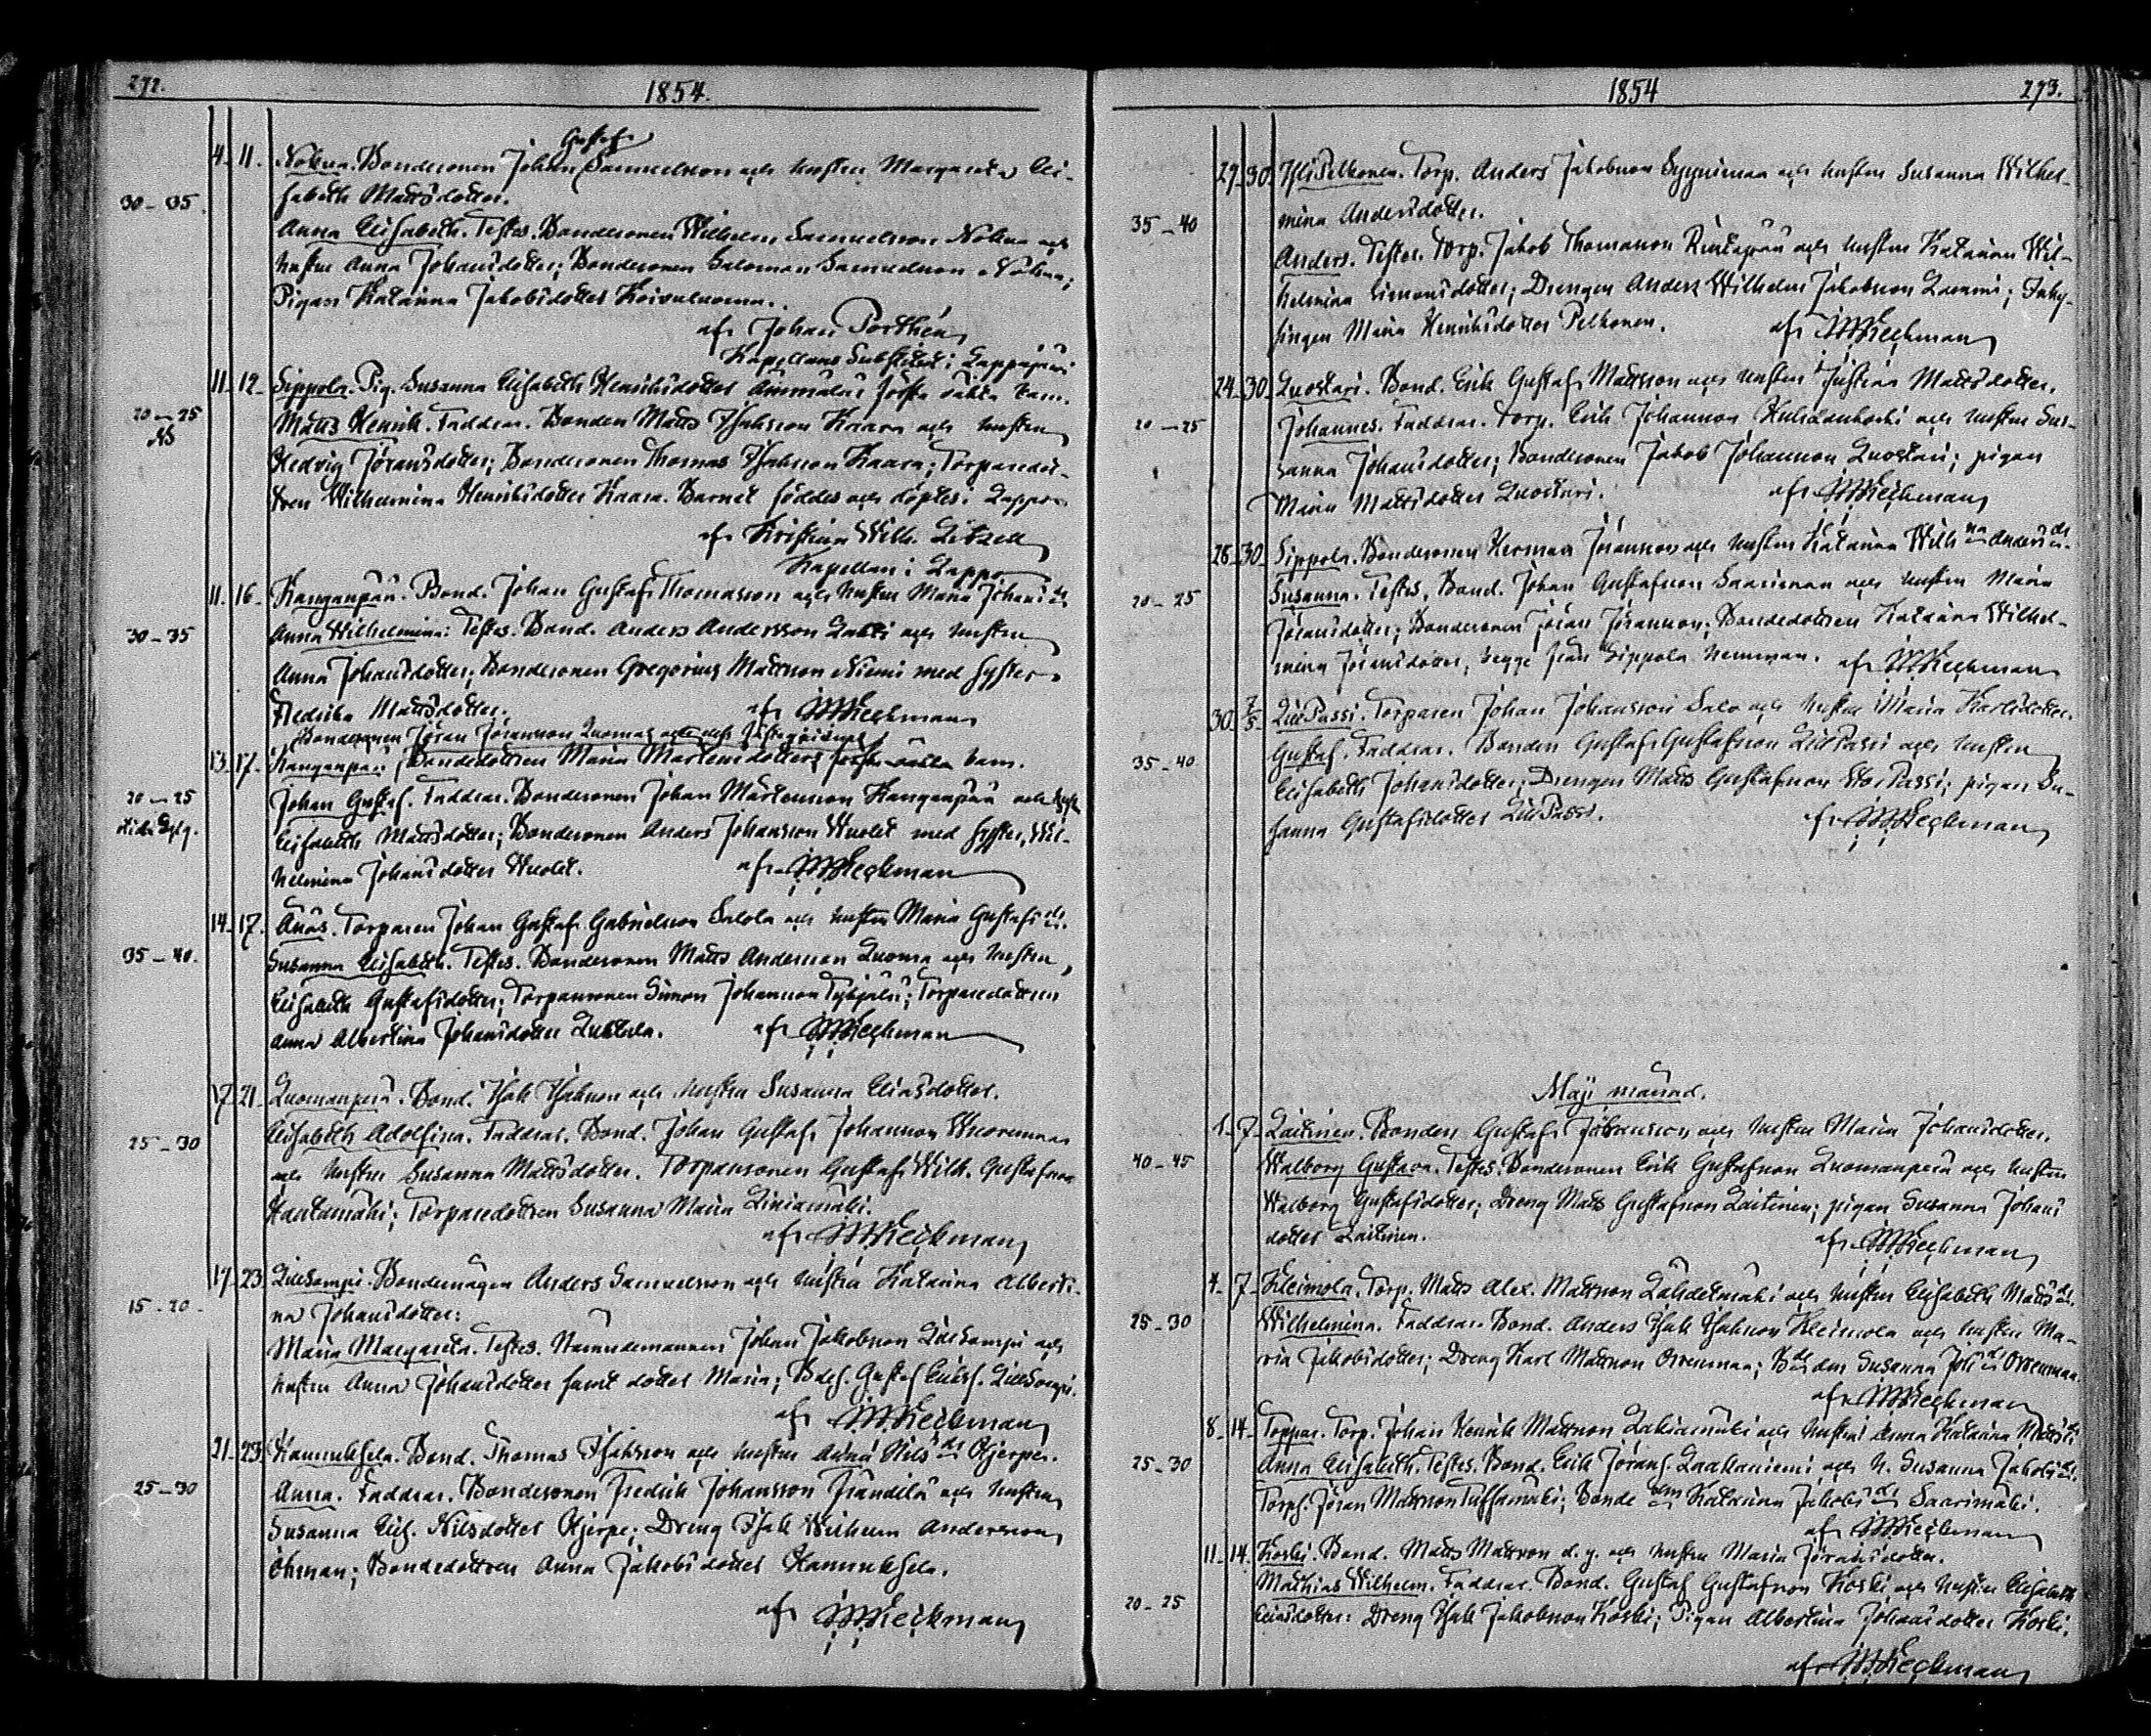 272.
1854.
4. 11. Nokua. Bondesonen Johan Gustaf Samuelsson och hustru Margareta Eli-
30-35 sabeth Mattsdotter.
Anna Elisabeth. Testes. Bondesonen Wilhelm Samuelsson Nokua och
hustru Anna Johansdotter; Bondesonen Salomon Samuelsson Nokua;
Pigan Katarina Jakobsdotter
af Johan Porthén
Kapellans Substitut i Lappajärvi
11. 12. Sippola. Pig. Susanna Elisabeth Henriksdotter första oäkta barn.
20-25 Matts Henrik. Faddrar. Bonden Matts Isaksson Kaara och hustru
Hedvig Jöransdotter; Bondesonen Thomas Isaksson Kaara; Torparedot-
tren Wilhelmina Henriksdotter Kaara. Barnet föddes och döptes i Lappo
af Kristian Wilh.
Kapellan i Lappo
11. 16. Kanganpää. Bond. Johan Gustaf Thomasson och hustru Maria Johansdr
30-35 Anna Wilhelmina: Testes. Bond. Anders Andersson och hustru
Anna Johansdotter; Bondesonen Gregorius Mattsson Niemi med syster,
Fredrika Mattsdotter. af
Bondesonen Jöran Jöransson Luoma och
13. 17. Kanganpää, Bondedottren Maria Mårtensdotters första oäkta barn.
20-25 Johan Gustaf. Faddrar. Bondesonen Johan Mårtensson Kanganpää och
Elisabeth Mattsdotter; Bondesonen Anders Johansson Wuolet med syster, Wil-
helmina Johansdotter Wuolet. af
14. 17. Änäs. Torparen Johan Gustaf Gabrielsson Salola och hustru Maria Gustafsdr.
35-40. Susanna Elisabeth. Testes. Bondesonen Matts Andersson Luoma och hustru,
Elisabeth Gustafsdotter; Torparesonen Simon Johansson; Torparedottren
Anna Albertina Johansdotter. af
17. 21. Luomanperä. Bond. Isak Isaksson och hustru Susanna Eliasdotter.
25-30 Elisabeth Adolfina. Faddrar. Bond. Johan Gustaf Johansson Wuorenmaa
och hustru Susanna Mattsdotter. Torparesonen Gustaf Wilh. Gustafsson
Hautamäki; Torparedottren Susanna Maria
af
17. 23. Lillsompi. Bondemågen Anders Samuelsson och hustru Katarina Alberti-
15-20. na Johansdotter:
Maria Margareta. Testes. Nämndemannen Johan Jakobsson Lillsompi och
hustru Anna Johansdotter samt dotter Maria; Gustaf Lillsompi.
af
21. 23. Hannuksela. Bond. Thomas Isaksson och hustru Anna Nilsdr Hjerpe.
25-30 Anna. Faddrar. Bondesonen Fredrik Johansson Frändilä och hustru
Susanna Elis. Nilsdotter Hjerpe; Dreng Isak Wilhelm Andersson
Öhman; Bondedottren Anna Jakobsdotter Hannuksela.
af
1854
273.
29. 30. Torp. Anders Jakobsson Syynimaa och hustru Susanna Wilhel-
35-40 mina Andersdotter.
Anders. Testes. Torp. Jakob Thomasson och hustru Katarina Wil-
helmina Simonsdotter; Drengen Anders Wilhelm Jakobsson Lammi; Inhy-
singen Maria Henriksdotter Pelkonen. af
24. 30. Luostari. Bond. Erik Gustaf Mattsson och hustru Justina Mattsdotter.
20-25 Johannes. Faddrar. Torp. Erik Johansson och hustru Sus-
anna Johansdotter; Bondesonen Jakob Johansson Luostari; pigan
Maria Mattsdotter Luostari. af
28. 30. Sippola. Bondesonen Herman Jöransson och hustru Katarina Wilhna Andersdr.
20-25 Susanna. Testes. Bond. Johan Gustafsson Saarimaa och hustru Maria
Jöransdotter; Bondesonen Jöran Jöransson; Bondedottren Katarina Wilhel-
mina Jöransdotter, begge från Sippola hemman. af
30. 7/5 LillPassi. Torparen Johan Johansson Salo och hustru Maria Karlsdotter.
35-40 Gustaf. Faddrar. Bonden Gustaf Gustafsson LillPassi och hustru
Elisabeth Johansdotter; Drengen Matts Gustafsson StorPassi; pigan Su-
sanna Gustafsdotter LillPassi. af
Maji månad.
1. 7. Laitinen. Bonden Gustaf Johansson och hustru Maria Johansdotter.
40-45 Walborg Gustava. Testes. Bondesonen Erik Gustafsson Luomanperä och hustru
Walborg Gustafsdotter; Dreng Matts Gustafsson Laitinen; pigan Susanna Johans
dotter Laitinen. af
4. 7. Kleimola. Torp. Matts Alex. Mattsson Lähdetmäki och hustru Elisabeth Mattsdr.
25-30 Wilhelmina. Faddrar. Bond. Anders Isak Isaksson Kleimola och hustru Ma-
ria Jakobsdotter; Dreng Karl Mattsson Orrenmaa; Susanna Orrenmaa.
af
8. 14. Toppar. Torp. Johan Henrik Mattsson och hustru Anna Katarina Mattsdr
25-30 Anna Elisabeth. Testes. Bond. Erik Jörans. Laakaniemi och h. Susanna Jakobsdr.
Torps. Jöran Mattsson; Katarina Jakobsdr Saarimäki.
af
11. 14. Koski. Bond. Matts Mattsson d. y. och hustru Maria Jöransdotter.
20-25 Mathias Wilhelm. Faddrar. Bond. Gustaf Gustafsson Koski och hustru Elisabeth
Eliasdotter: Dreng Isak Jakobsson Koski; Pigan Albertina Johansdotter Koski.
af